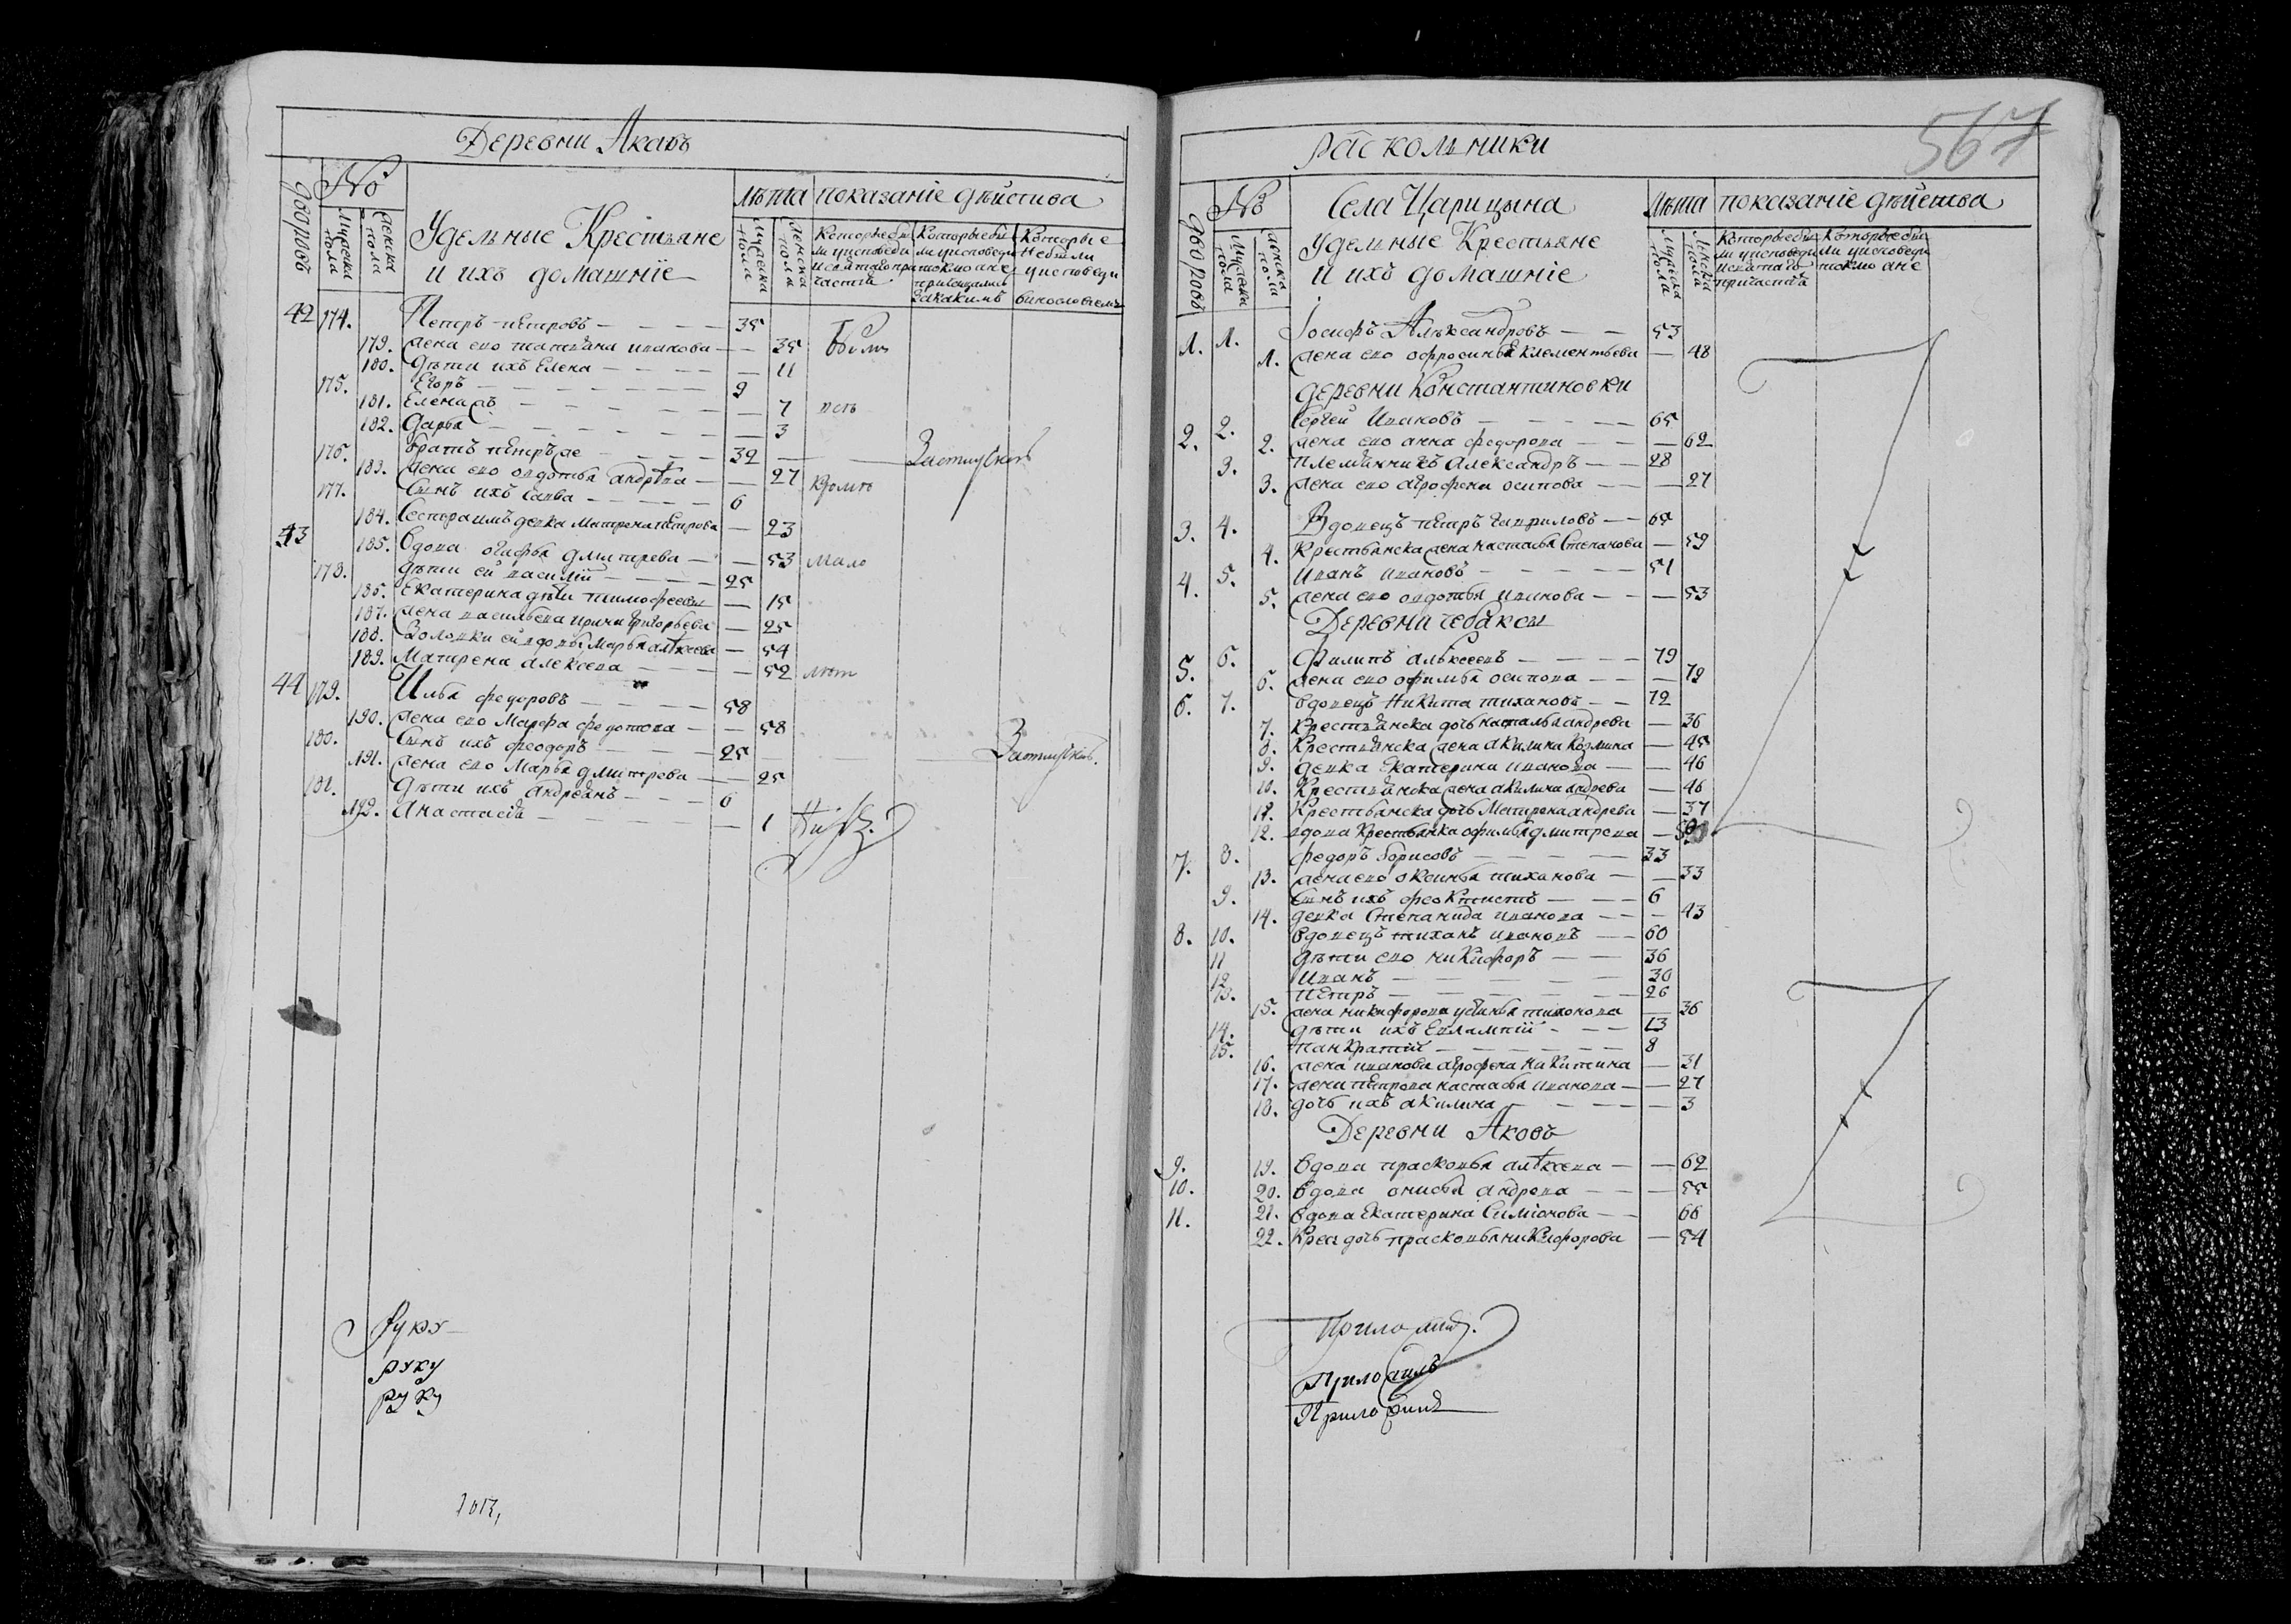 Деревни Акавъ
№
Дворовъ
Мужска пола
Женска пола
Удѣльные Крестьяне
и ихъ домашніе
лѣта
Мужска пола
Женска пола
показаніе дѣйства
Которые бы
ли уисповеди
и святаго при
частія
Которые бы
ли уисповеди
токмо а не
причащались
Которые
не были
уисповеди
42 174. Петръ петровъ — 35
179. жена ево татьяна иванова — 35 Были
180. дѣти ихъ Елена — 11
175. Егоръ — 9
181. Елена жъ — 7
182. Дарья — 3
176. братъ петръ же — 32
183. жена ево авдотья андрѣева — 27
177. Сынъ ихъ Савва — 6
184. Сестра имъ девка Матрена петрова — 23
43 185. Вдова дмитрева — 53 мало
178. дѣти ей василій — 25
186. Екатерина дѣти тимофеевы — 15
187. жена васильева ирина григорьева — 25
188. Золовки ей вдовы Марья алѣксеева — 54
189. Матрена алексева — 52
44 179. Илья федоровъ — 58
190. жена ево Марфа федотова — 58
180. Сынъ ихъ феодоръ — 25
191. жена ево Марья дмитрева — 25
181. дѣти ихъ андреанъ — 6
192. Анастасія — 1
руку
руку
руку
567
раскольники
№
Дворовъ
Мужска пола
Женска пола
Села Царицына
Удельные Крестьяне
и ихъ домашніе
лѣта
Мужска пола
Женска пола
показаніе дѣйства
Которые бы
ли уисповеди
и святаго
причастія
Которые бы
ли уисповеди
токмо а не
1. 1. Іосифъ Алѣксандровъ — 53
1. жена ево офросинья клементьева — 48
деревни Константиновки
2. 2. Сергей Ивановъ — 65
2. жена ево анна федорова — 62
3. племянникъ Александръ — 28
3. жена ево агрофена осипова — 27
3. 4. Вдовецъ петръ гавриловъ — 65
4. Крестьянска жена настасья Степанова — 59
4. 5. Иванъ ивановъ — 51
5. жена ево авдотья иванова — 53
Деревни чебаксы
5. 6. Филипъ алѣксеевъ — 79
6. жена ево офимья осипова — 79
6. 7. вдовецъ Никита тихановъ — 72
7. Крестьянска дочь наталья андрева — 36
8. Крестьянска жена акилина Козмина — 45
9. девка Екатерина иванова — 46
10. Крестьянска жена акилина андрева — 46
11. Крестьянска дочь Матрена андрева — 37
12. вдова Крестьянка офимья дмитрева
7. 8. федоръ борисовъ — 33
13. жена ево оксинья тиханова — 33
9. Сынъ ихъ феоктистъ — 6
14. девка Степанида иванова — 43
8. 10. вдовецъ тиханъ ивановъ — 60
11 дѣти ево никифоръ — 36
12. Иванъ — 30
13. петръ — 26
15. жена никифорова устинья тихонова — 36
14. дѣти ихъ Евлампій — 13
15. панкратій — 8
16. жена иванова агрофена никитина — 31
17. жена петрова настасья иванова — 27
18. дочь ихъ акилина — 3
Деревни Аковъ
9. 19. вдова прасковья алѣксева — 62
10. 20. вдова анисья андрева — 55
11. 21. вдова Екатерина Симіонова — 66
22. Крес дочь прасковья никифорова — 54
приложилъ
приложилъ
приложилъ